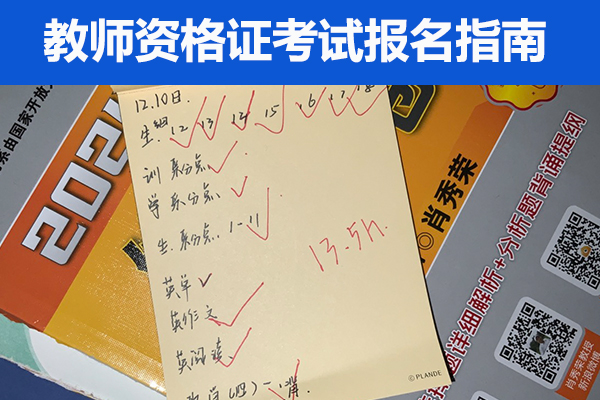 教师资格证考试报名指南
12.10日.
生理. 12 13 14 15 16 17 18
训 累分点.
学 累分点.
生. 累分点. 1-11
13.5h.
英单
英作文
英阅读.
© PLANDE
系由国家开放
202
肖秀荣
题详细解析+分析题背诵提纲
肖秀荣教授
新浪微博